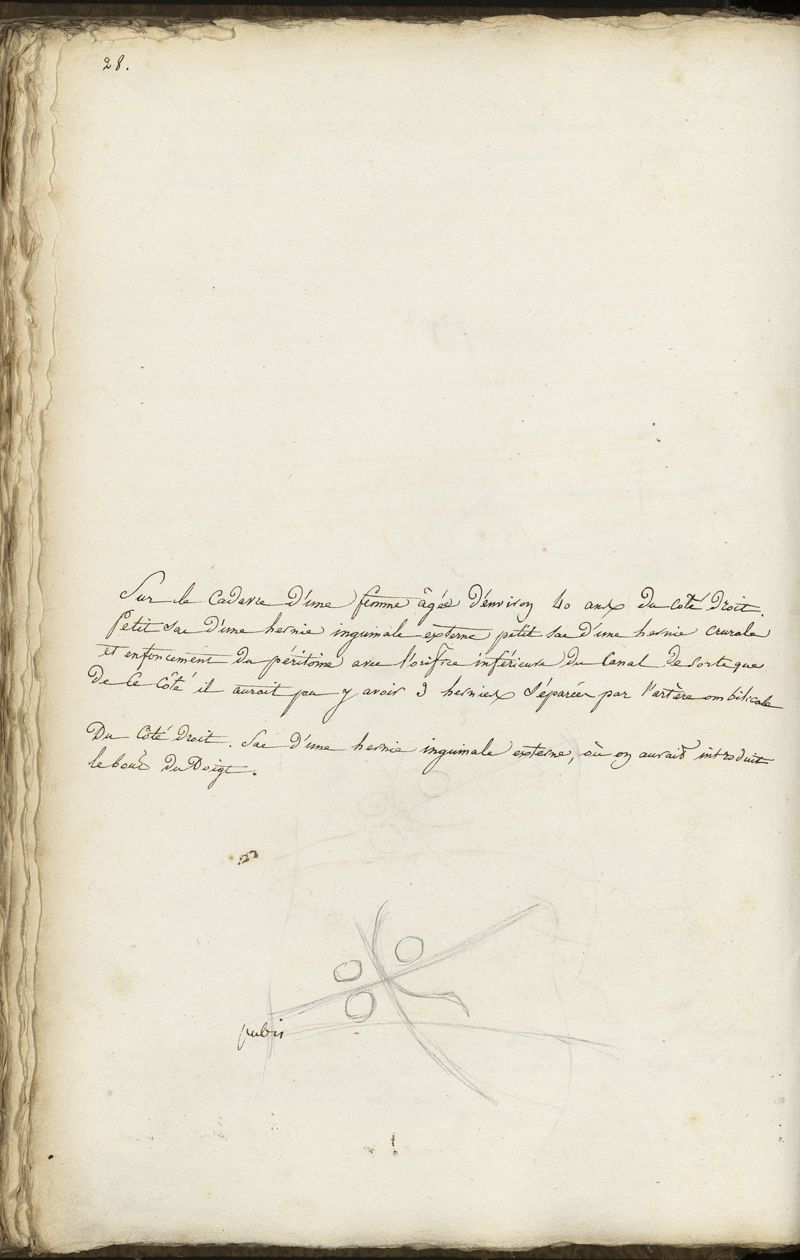 28.
Sur le Cadavre d'une femme âgée d'environ 40 ans du Coté droit.
Petit Sac d'une hernie inguinale externe petit sac d'une hernie crurale
et enfoncement du péritoine avec l'orifice inférieure du Canal de sorte que
de ce côté il aurait pu y avoir 3 hernies séparées par l'artère ombilicale
Du Côté droit. Sac d'une hernie inguinale externe, où on aurait introduit
le bout du Doigt.
pubis